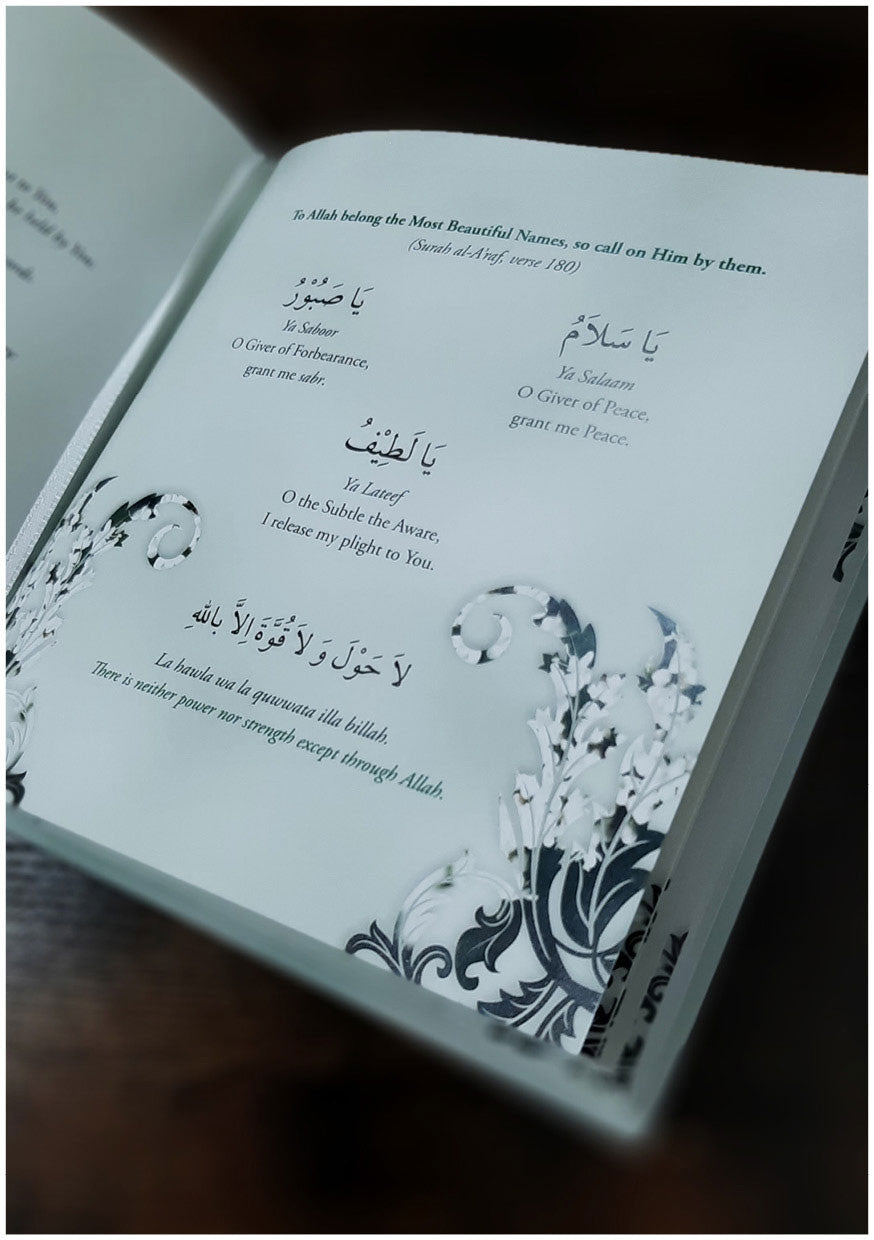 To Allah belong the Most Beautiful Names, so call on Him by them.
(Surah al-A'raf, verse 180)
يَا صَبُوْرُ
Ya Saboor
O Giver of Forbearance,
grant me sabr.
يَا سَلاَمُ
Ya Salaam
O Giver of Peace,
grant me Peace.
يَا لَطِيْفُ
Ya Lateef
O the Subtle the Aware,
I release my plight to You.
لاَ حَوْلَ وَ لاَ قُوَّةَ اِلاَّ بِاللهِ
La hawla wa la quwwata illa billah.
There is neither power nor strength except through Allah.